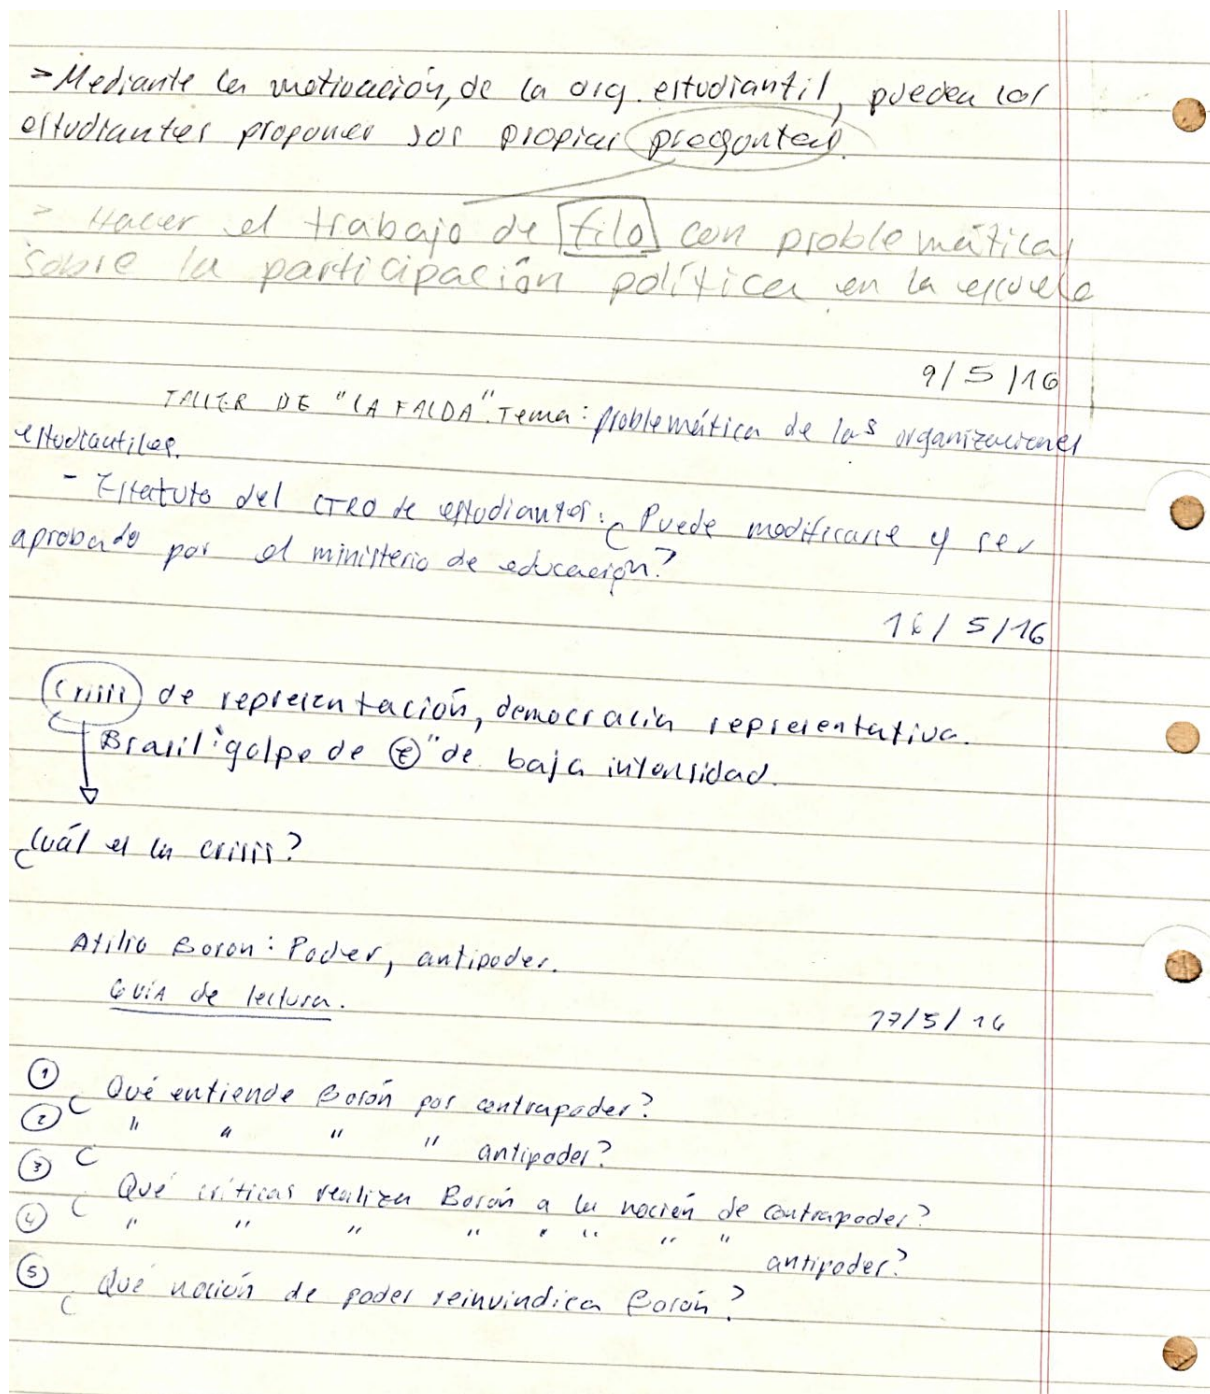 > Mediante la motivación, de la org. estudiantil, pueden los
estudiantes proponer sus propias preguntas.
> Hacer el trabajo de filo con problemáticas
sobre la participación política en la escuela
9/5/16
TALLER DE "LA FALDA". Tema: problemática de las organizaciones
estudiantiles.
- Estatuto del CTRO de estudiantes: ¿Puede modificarse y ser
aprobado por el ministerio de educación?
16/5/16
Crisis de representación, democracia representativa.
Brasil: "golpe de E" de baja intensidad.
¿Cuál es la crisis?
Atilio Boron: Poder, antipoder.
GUIA de lectura.
17/5/16
① ¿Qué entiende Borón por contrapoder?
② ¿ " " " " antipoder?
③ ¿Qué críticas realiza Borón a la noción de contrapoder?
④ " " " " " " " " antipoder?
⑤ ¿Qué noción de poder reinvindica Borón?